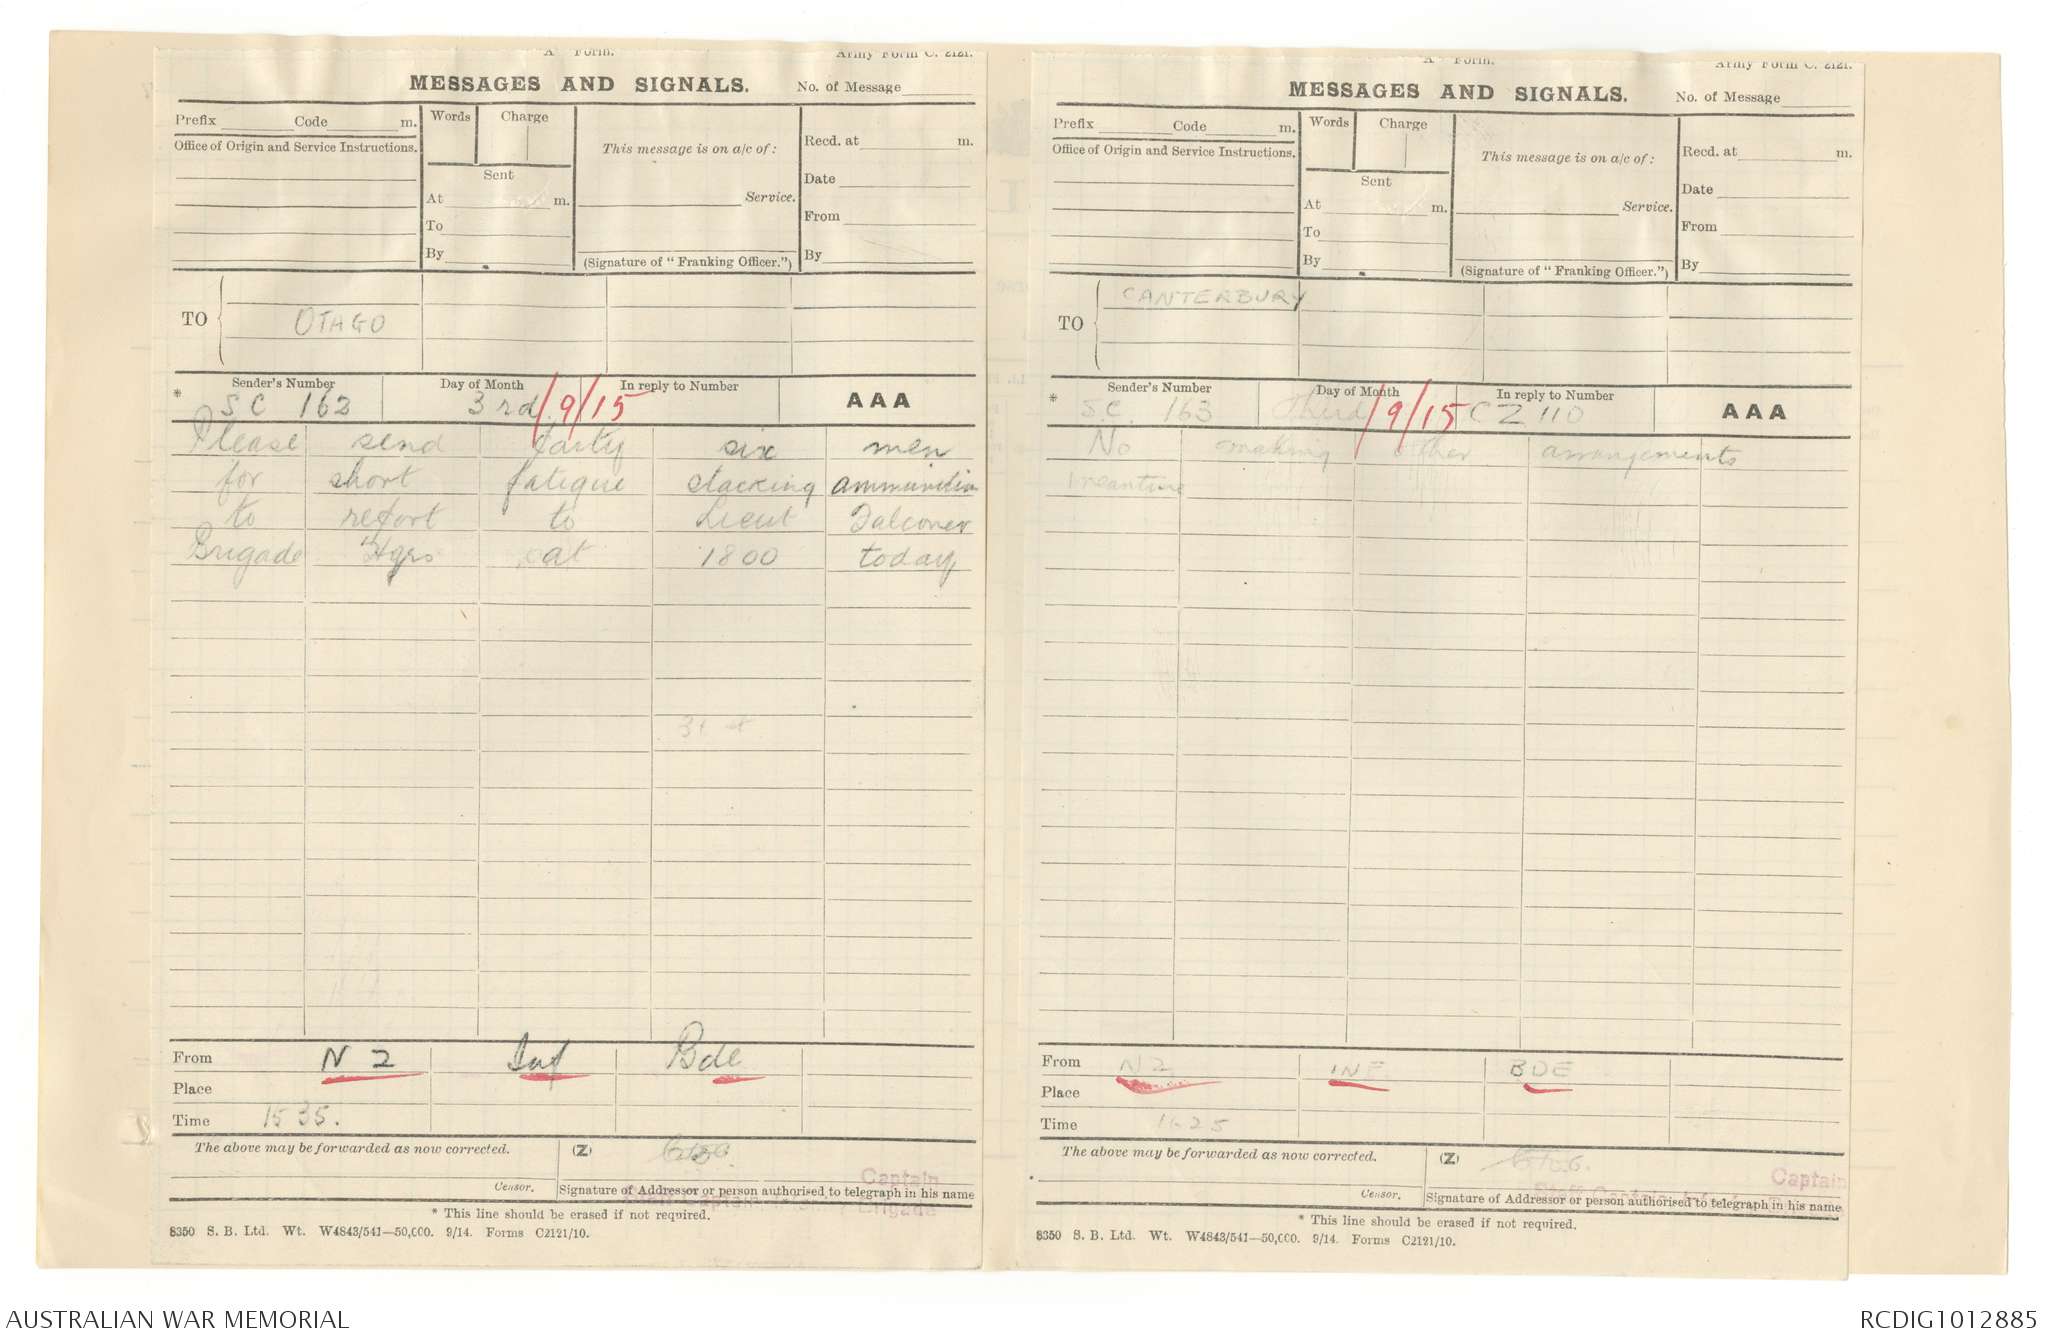 "A" Form.
Army Form C. 2121.
MESSAGES AND SIGNALS.
No. of Message
Prefix Code m.
Words Charge
This message is on a/c of:
Recd. at m.
Office of Origin and Service Instructions.
Sent
Date
At m.
Service.
From
To
By
(Signature of "Franking Officer.")
By
TO
OTAGO
Sender's Number Day of Month In reply to Number
* SC 162 3rd/9/15 AAA
Please send party six men
for short fatigue stacking ammunition
to report to Lieut Falconer
Brigade Hqrs at 1800 today
From NZ Inf Bde
Place
Time 1535.
The above may be forwarded as now corrected. (Z)
Captain
Censor. Signature of Addressor or person authorised to telegraph in his name
* This line should be erased if not required.
8350 S. B. Ltd. Wt. W4843/541—50,000. 9/14. Forms C2121/10.
"A" Form.
Army Form C. 2121.
MESSAGES AND SIGNALS.
No. of Message
Prefix Code m.
Words Charge
This message is on a/c of:
Recd. at m.
Office of Origin and Service Instructions.
Sent
Date
At m.
Service.
From
To
By
(Signature of "Franking Officer.")
By
TO
CANTERBURY
Sender's Number Day of Month In reply to Number
* S.C. 163 Third/9/15 CZ 110 AAA
No making other arrangements
meantime
From NZ INF. BDE
Place
Time 1625
The above may be forwarded as now corrected. (Z)
Captain
Censor. Signature of Addressor or person authorised to telegraph in his name
* This line should be erased if not required.
8350 S. B. Ltd. Wt. W4843/541—50,000. 9/14. Forms C2121/10.
AUSTRALIAN WAR MEMORIAL
RCDIG1012885